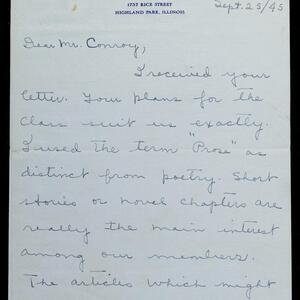 1757 RICE STREET
HIGHLAND PARK, ILLINOIS
Sept. 25/45
Dear Mr. Conroy,
I received your
letter. Your plans for the
class suit us exactly.
I used the term "Prose" as
distinct from poetry. Short
stories or novel chapters are
really the main interest
among our members.
The articles which might